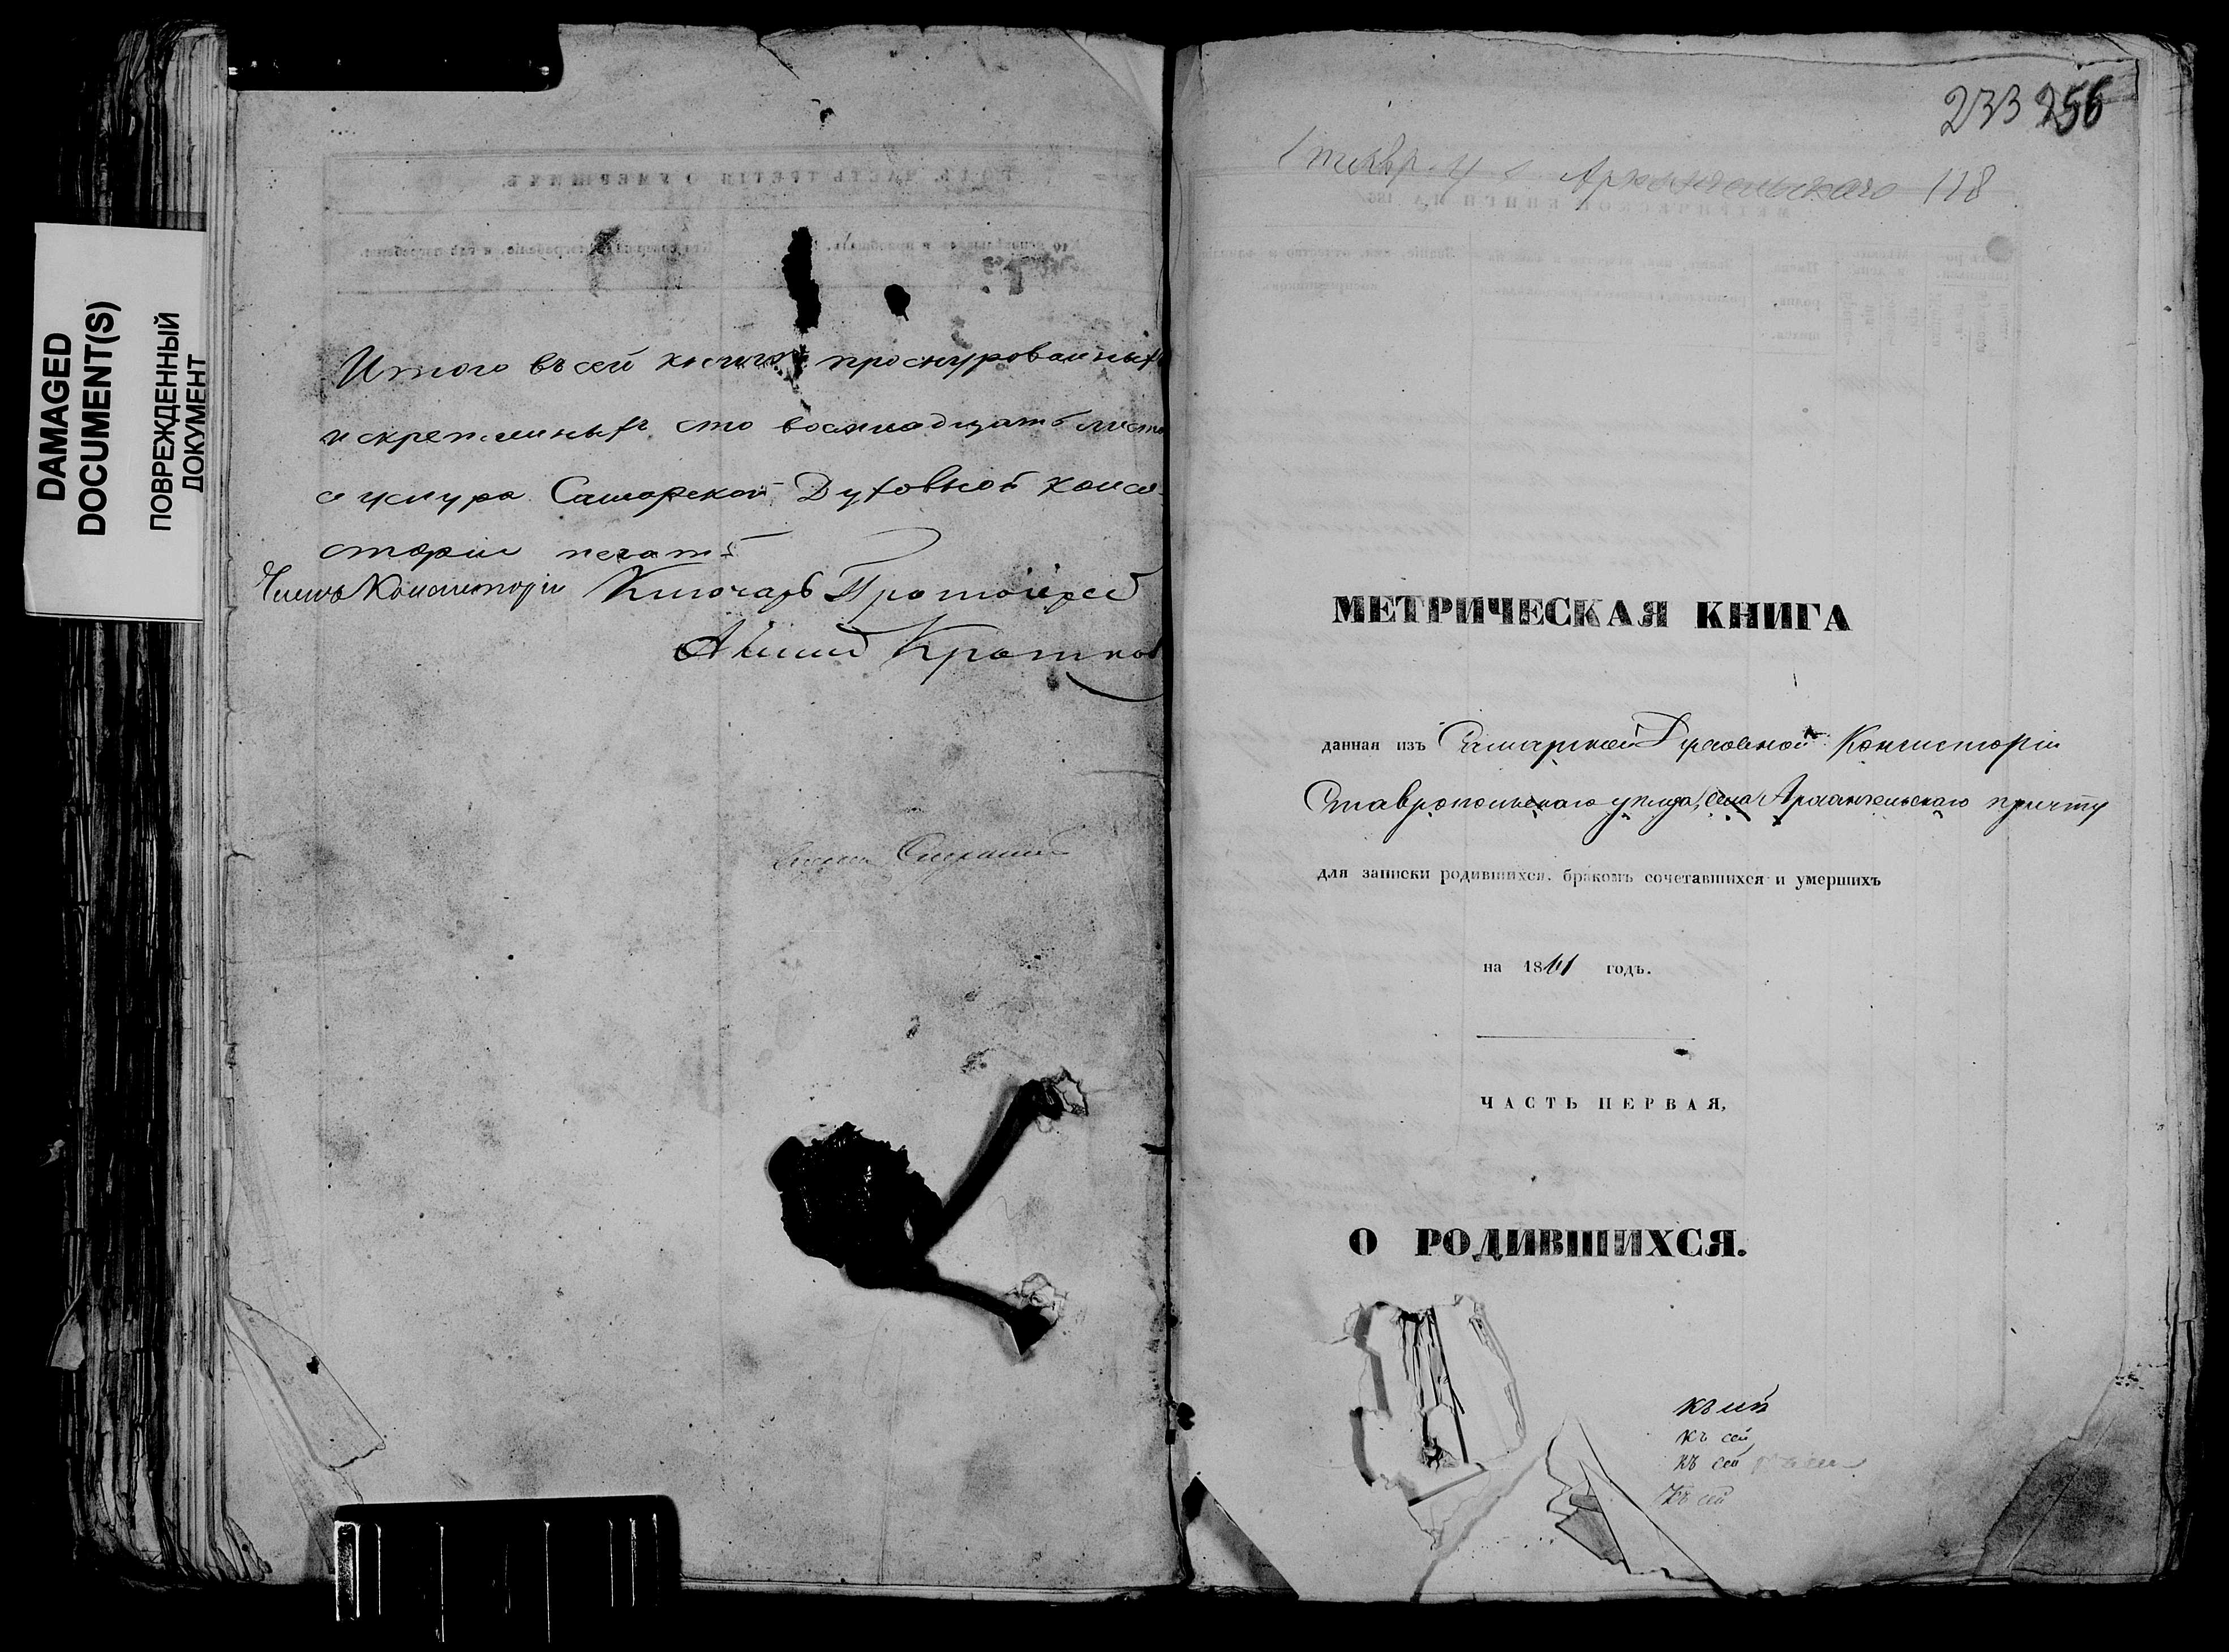 DAMAGED
DOCUMENT(S)
ПОВРЕЖДЕННЫЙ
ДОКУМЕНТ
Итого въ сей книгѣ прошнурованныхъ
и скрепленныхъ сто восемнадцать листо
и шнура Самарской Духовной Конси-
сторіи печать
Членъ Консисторіи Ключарь Протоіерей
233 256
Архангельскаго 118
МЕТРИЧЕСКАЯ КНИГА
данная изъ Самарской Духовной Консисторіи
Ставропольскаго уѣзда, села Архангельскаго причту
для записки родившихся, бракомъ сочетавшихся и умершихъ
на 1861 годъ.
ЧАСТЬ ПЕРВАЯ,
О РОДИВШИХСЯ.
къ сей
къ сей
къ сей